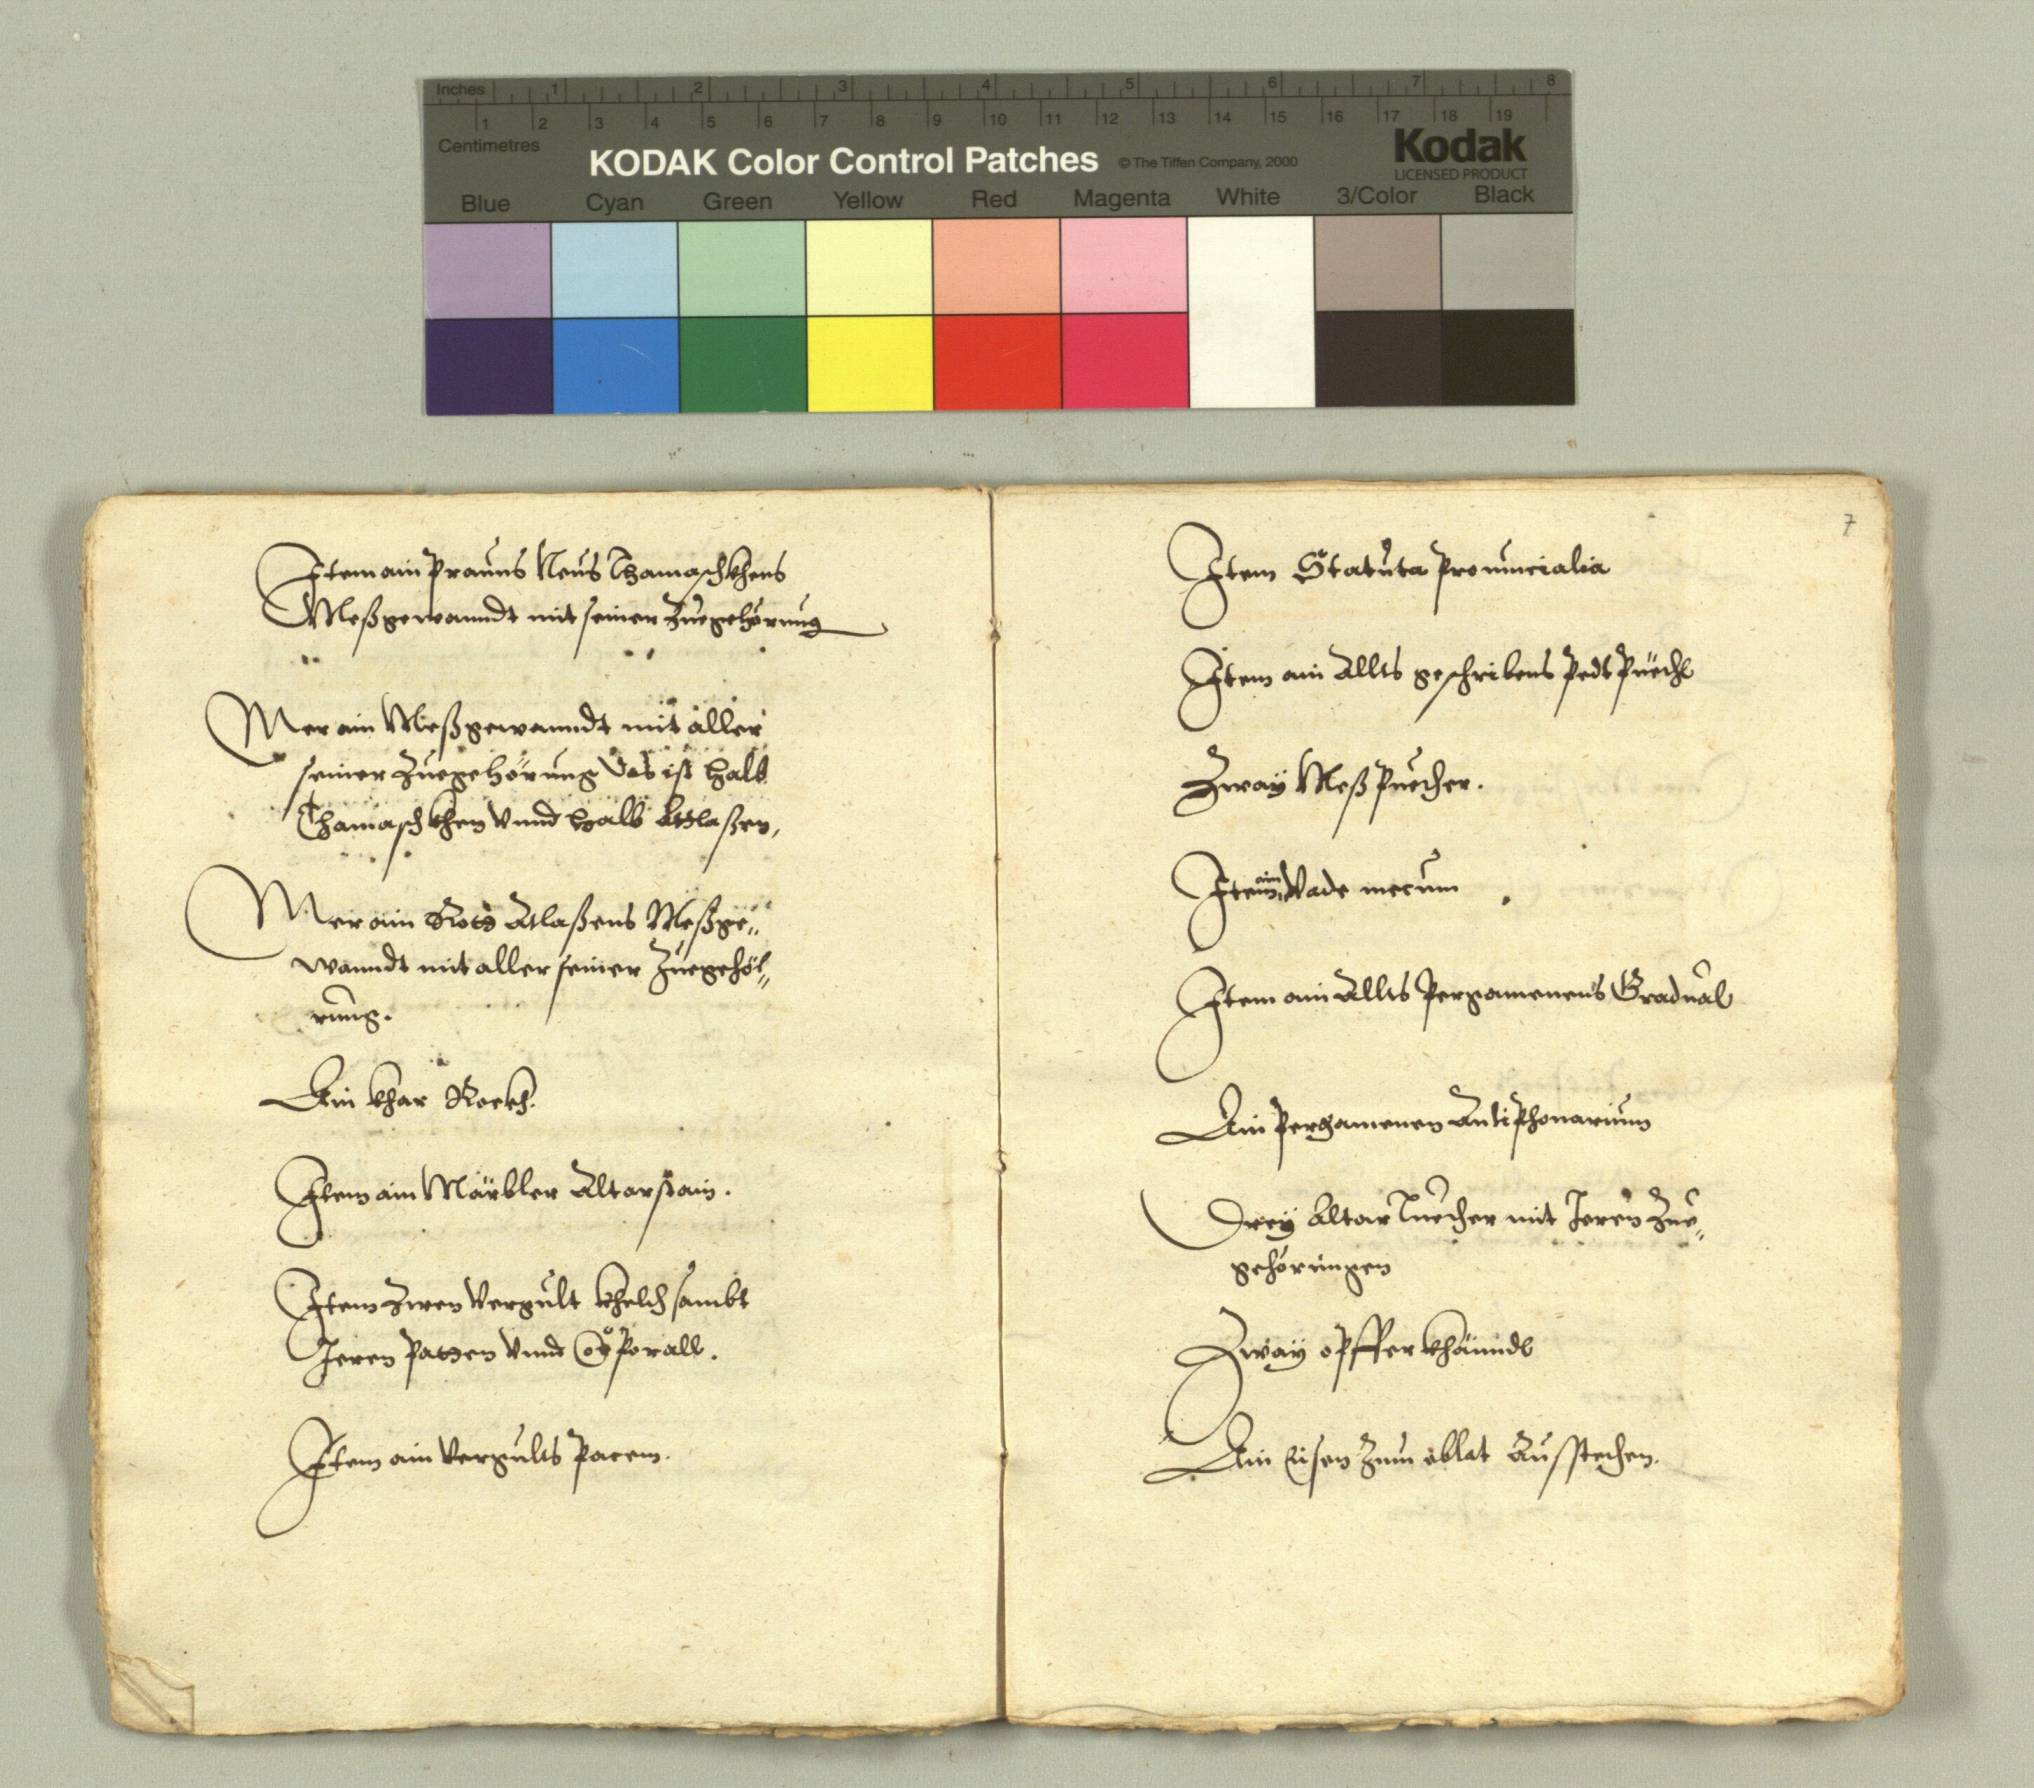 Inches 1 2 3 4 5 6 7 8
1 2 3 4 5 6 7 8 9 10 11 12 13 14 15 16 17 18 19
Centimetres
KODAK Color Control Patches © The Tiffen Company, 2000
Kodak
LICENSED PRODUCT
Blue Cyan Green Yellow Red Magenta White 3/Color Black
Item ain Prauns Neus Thamaschkhens
Meßgewanndt mit seiner Zuegehörung
Mer ain Meßgewanndt mit aller
seiner Zuegehörung das ist halb
Thamaschkhen vnnd halb Attlaßen,
Mer ain Rots Atlaßens Meßge„
wanndt mit aller seiner Zuegehö„
rung.
Ain khar Rockh.
Item ain Märbler Altarstain.
Item Zwen vergült khelch sambt
Jeren Patten vnnd Corporall.
Item ain vergults Pacem.
7
Item Statuta Prouincialia
Item ain Allts geschribens Pedt Püechl
Zway Meß Puecher.
Item ain Vade mecum
Item ain Allts Pergamenens Gradual
Ain Pergamenen Antiphonarium
Drey Altar Tuecher mit Jeren Zue„
gehörungen
Zway opffer khänndl
Ain Eisen Zum oblat Ausstechen.